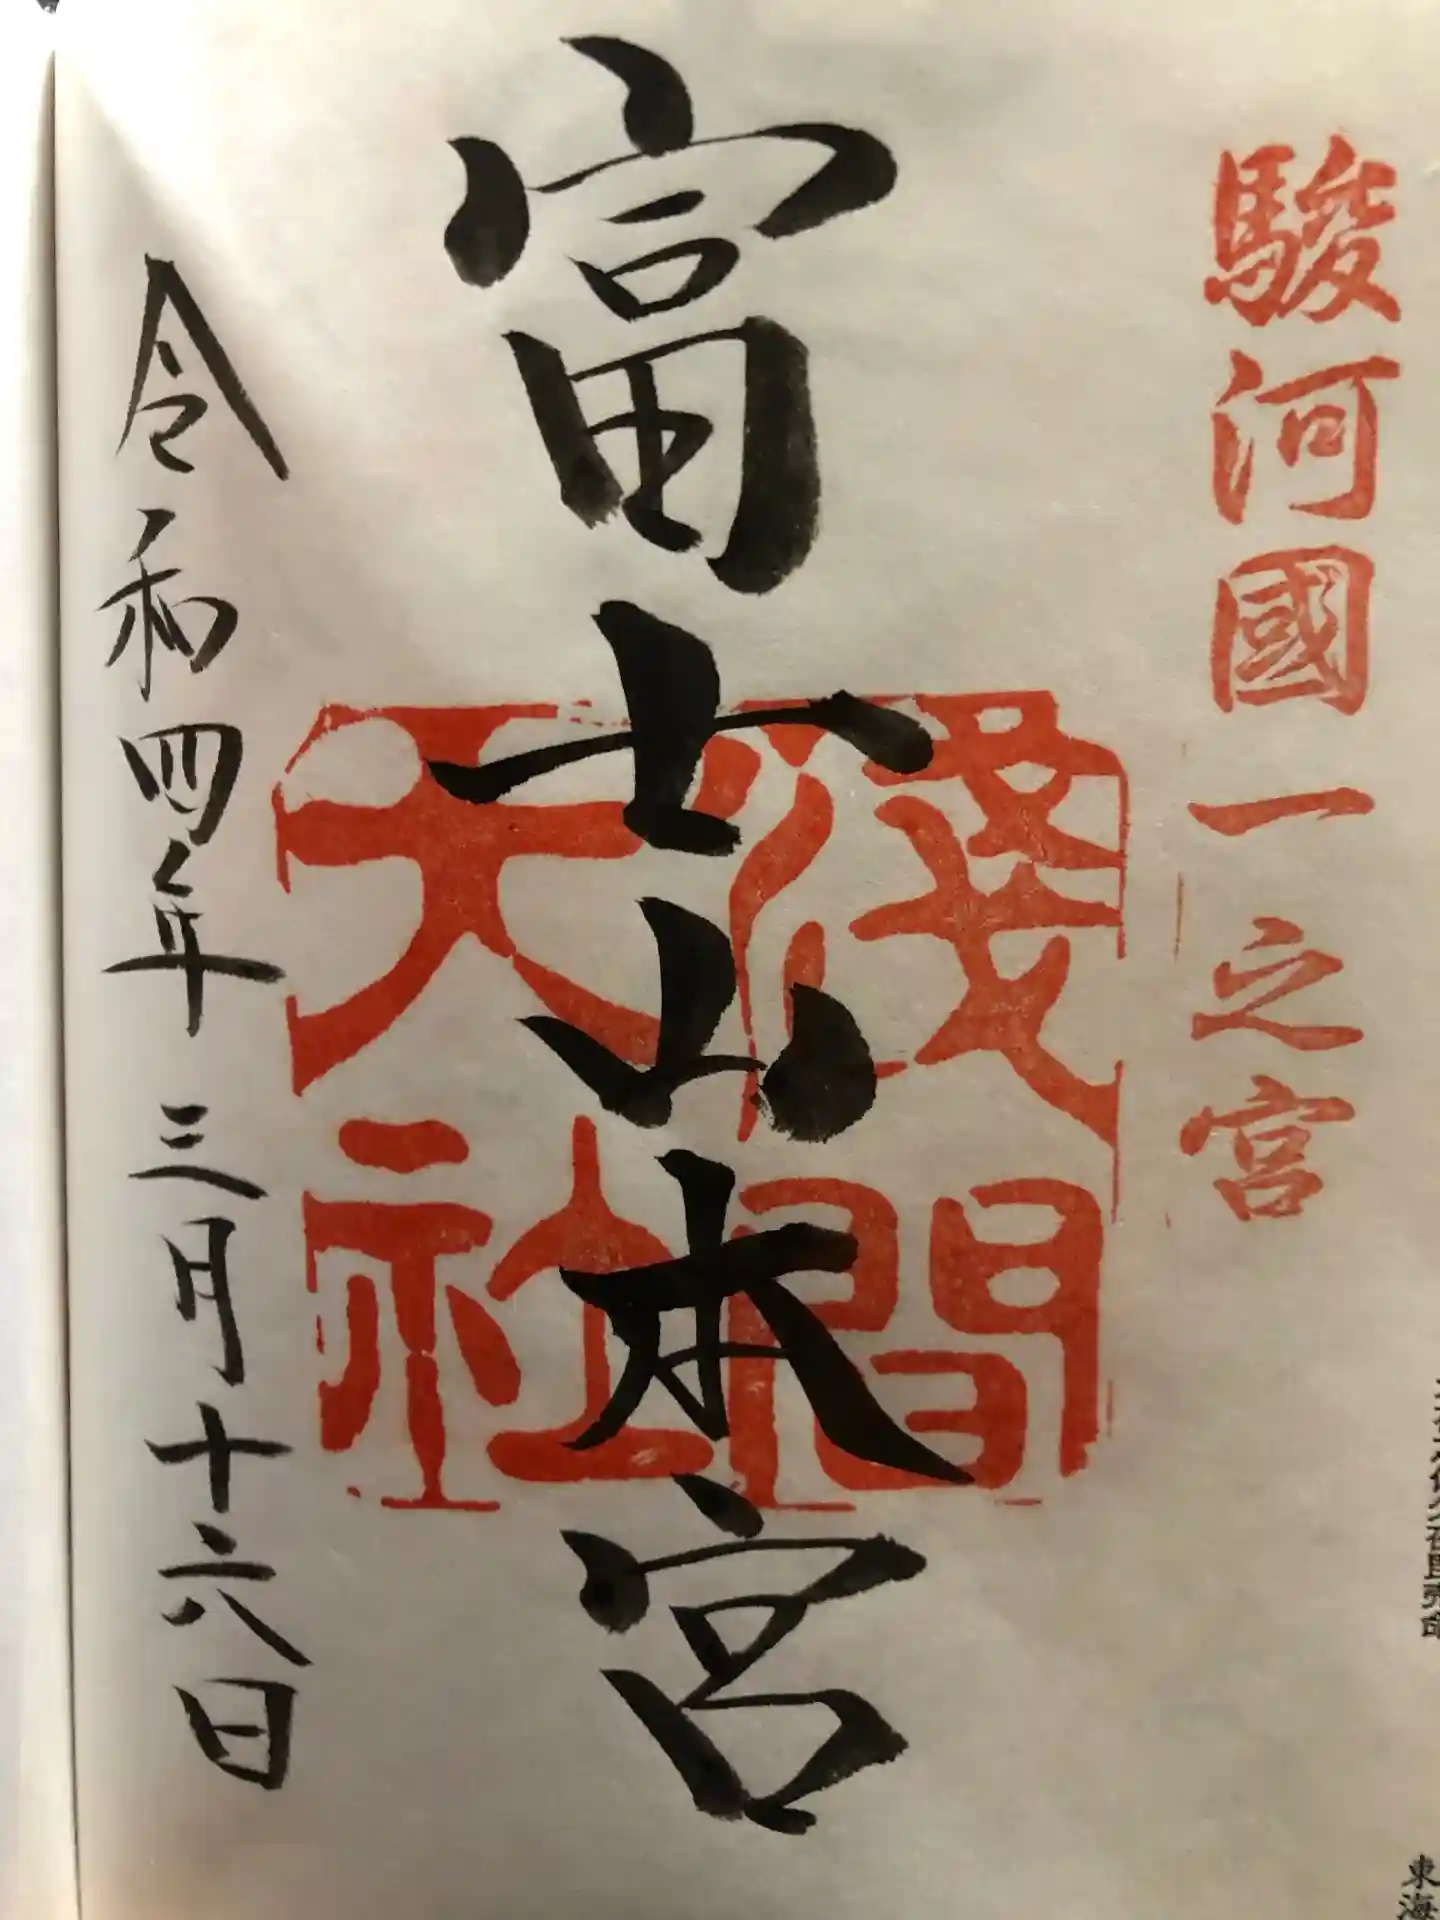 駿河國一之宮
富士山本宮
淺間
大社
令和四年三月十六日
東海